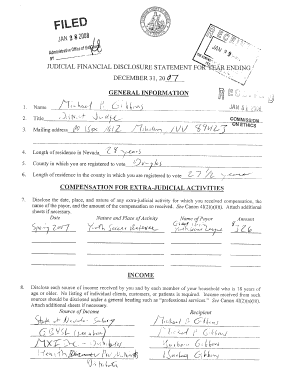 FILED
JAN 28 2008
Administrative Office of the
BY
JAN
JUDICIAL FINANCIAL DISCLOSURE STATEMENT FOR YEAR ENDING
DECEMBER 31, 2007
GENERAL INFORMATION
JAN 2008
COMMISSION
ON ETHICS
1. Name Michael P Gibbons
2. Title District Judge
3. Mailing address PO Box Minden NV 89423
4. Length of residence in Nevada 28 years
5. County in which you are registered to vote Douglas
6. Length of residence in the county in which you are registered to vote 27 1/2 years
COMPENSATION FOR EXTRA-JUDICIAL ACTIVITIES
7. Disclose the date, place, and nature of any extra-judicial activity for which you received compensation, the
name of the payor, and the amount of the compensation so received. See Canon 4I(2)(a)(i). Attach additional
sheets if necessary.
Date Nature and Place of Activity Name of Payor Amount
Spring 2007 Youth Soccer Referee League $126
INCOME
8. Disclose each source of income received by you and by each member of your household who is 18 years of
age or older. No listing of individual clients, customers, or patients is required. Income received from such
sources should be disclosed under a general heading such as "professional services".
Attach additional sheets if necessary.
Source of Income Recipient
State of Nevada Salary Michael P Gibbons
Michael P Gibbons
Barbara Gibbons
Barbara Gibbons